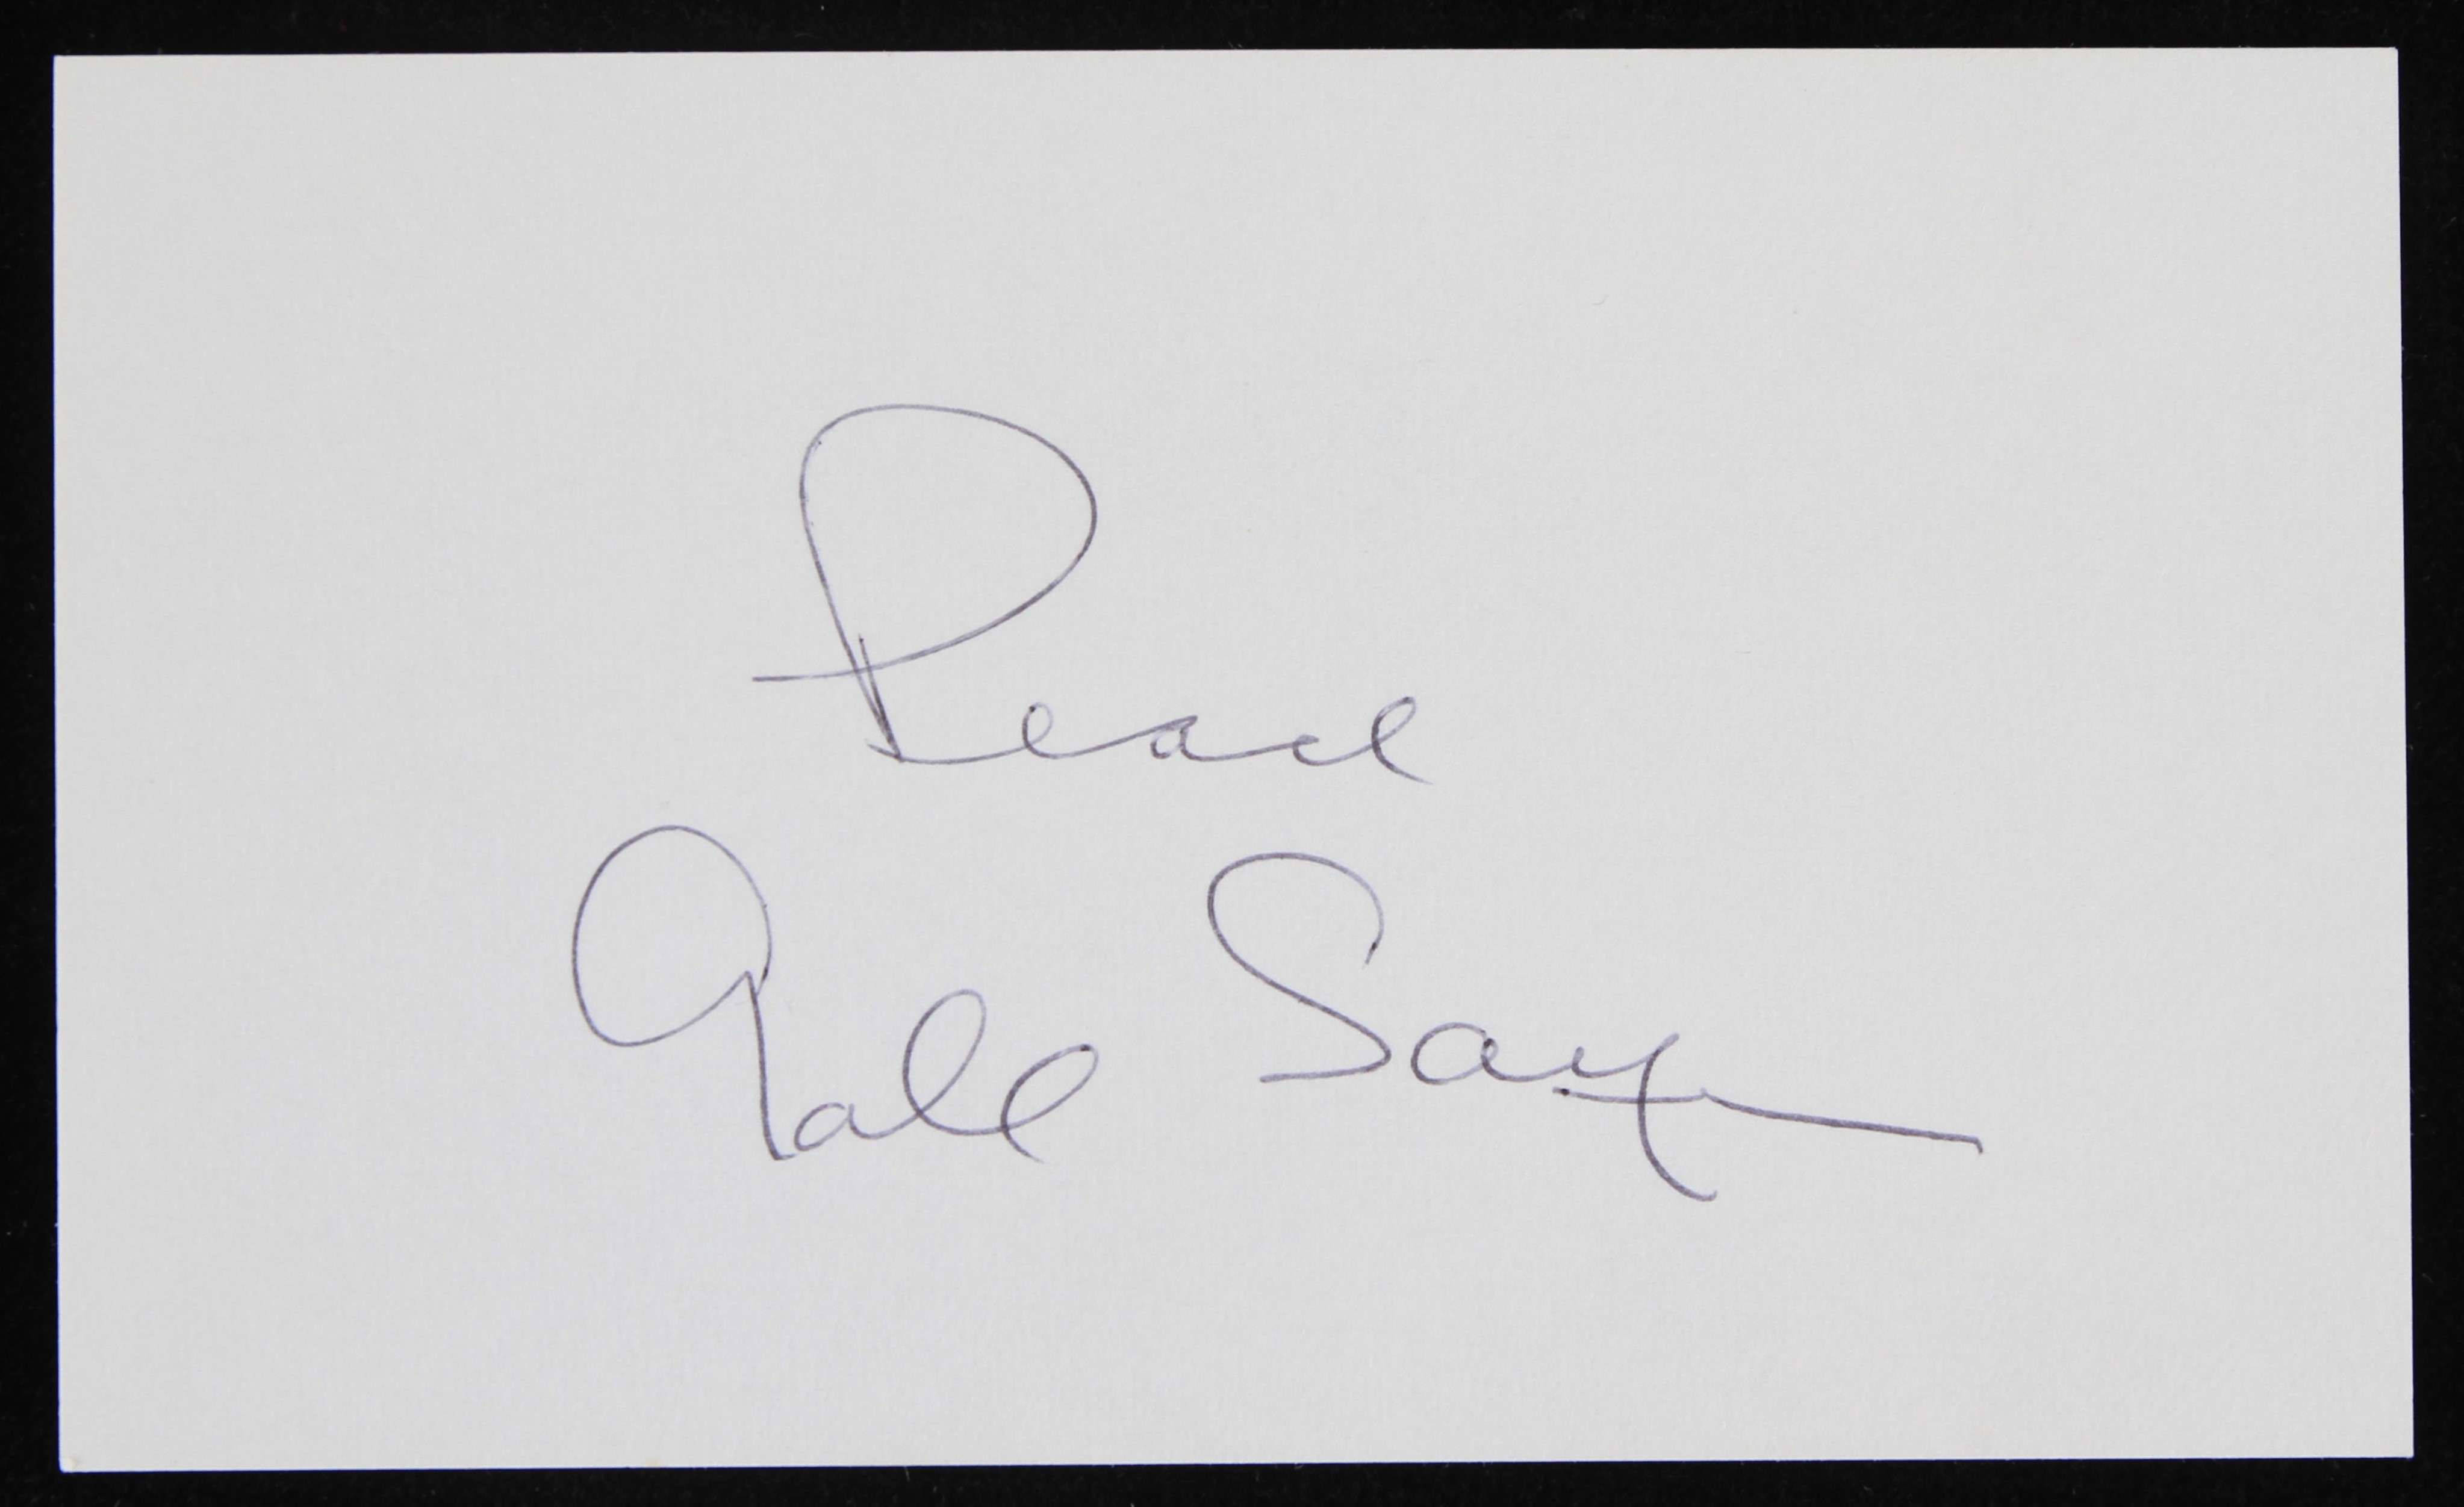 Peace
Gale Sayers